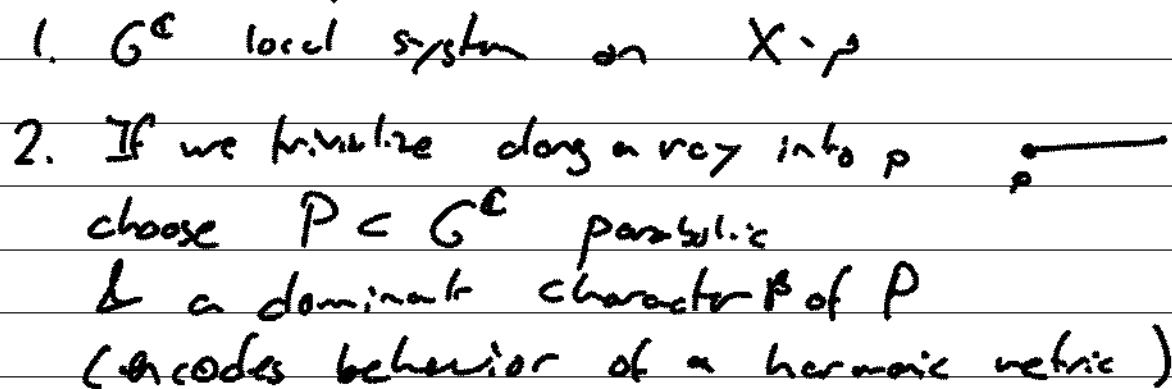 1. G^ℂ local system on X - p
2. If we trivialize along a ray into p
p
choose P ⊂ G^ℂ parabolic
& a dominant character β of P
(encodes behavior of a harmonic metric)